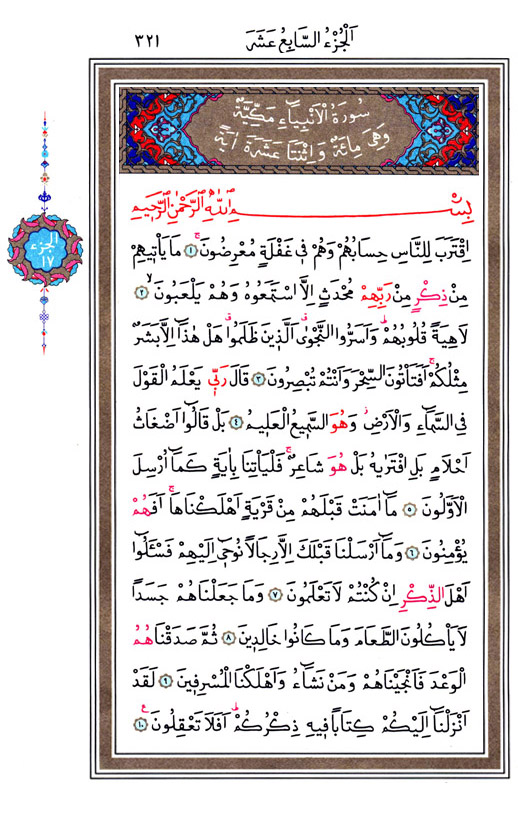 اَلْجُزْءُ السَّابِعُ عَشَرَ
٣٢١
سُورَةُ الْاَنْبِيَاءِ مَكِّيَّةٌ
وَهِيَ مِائَةٌ وَاِثْنَتَا عَشَرَةَ اٰيَةً
الجزء
١٧
بِسْمِ اللّٰهِ الرَّحْمٰنِ الرَّحِيمِ
اِقْتَرَبَ لِلنَّاسِ حِسَابُهُمْ وَهُمْ فِي غَفْلَةٍ مُعْرِضُونَۚ ١ مَا يَأْتِيهِمْ
مِنْ ذِكْرٍ مِنْ رَبِّهِمْ مُحْدَثٍ اِلَّا اسْتَمَعُوهُ وَهُمْ يَلْعَبُونَۙ ٢
لَاهِيَةً قُلُوبُهُمْۜ وَاَسَرُّوا النَّجْوٰىۗ اَلَّذِينَ ظَلَمُواۗ هَلْ هٰذَٓا اِلَّا بَشَرٌ
مِثْلُكُمْۚ اَفَتَأْتُونَ السِّحْرَ وَاَنْتُمْ تُبْصِرُونَ ٣ قَالَ رَبِّي يَعْلَمُ الْقَوْلَ
فِي السَّمَٓاءِ وَالْاَرْضِۘ وَهُوَ السَّمِيعُ الْعَلِيمُ ٤ بَلْ قَالُٓوا اَضْغَاثُ
اَحْلَامٍ بَلِ افْتَرٰيهُ بَلْ هُوَ شَاعِرٌۚ فَلْيَأْتِنَا بِاٰيَةٍ كَمَٓا اُرْسِلَ
الْاَوَّلُونَ ٥ مَٓا اٰمَنَتْ قَبْلَهُمْ مِنْ قَرْيَةٍ اَهْلَكْنَاهَاۚ اَفَهُمْ
يُؤْمِنُونَ ٦ وَمَٓا اَرْسَلْنَا قَبْلَكَ اِلَّا رِجَالًا نُوحِٓي اِلَيْهِمْ فَسْـَٔلُٓوا
اَهْلَ الذِّكْرِ اِنْ كُنْتُمْ لَا تَعْلَمُونَ ٧ وَمَا جَعَلْنَاهُمْ جَسَدًا
لَا يَأْكُلُونَ الطَّعَامَ وَمَا كَانُوا خَالِدِينَ ٨ ثُمَّ صَدَقْنَاهُمُ
الْوَعْدَ فَاَنْجَيْنَاهُمْ وَمَنْ نَشَٓاءُ وَاَهْلَكْنَا الْمُسْرِفِينَ ٩ لَقَدْ
اَنْزَلْنَٓا اِلَيْكُمْ كِتَابًا فِيهِ ذِكْرُكُمْۜ اَفَلَا تَعْقِلُونَ ١٠ ع